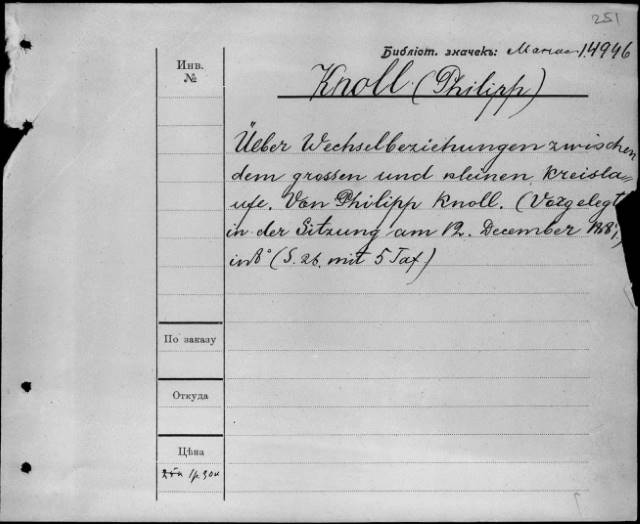 251
Библіот. значекъ: 14946
Инв.
№
Knoll (Philipp)
Über Wechselbeziehungen zwischen
dem grossen und kleinen Kreisla=
ufe. Von Philipp Knoll. (Vorgelegt
in der Sitzung am 12. December
in 8° (S. 26. mit 5 Taf)
По заказу
Откуда
Цѣна
1р.30к